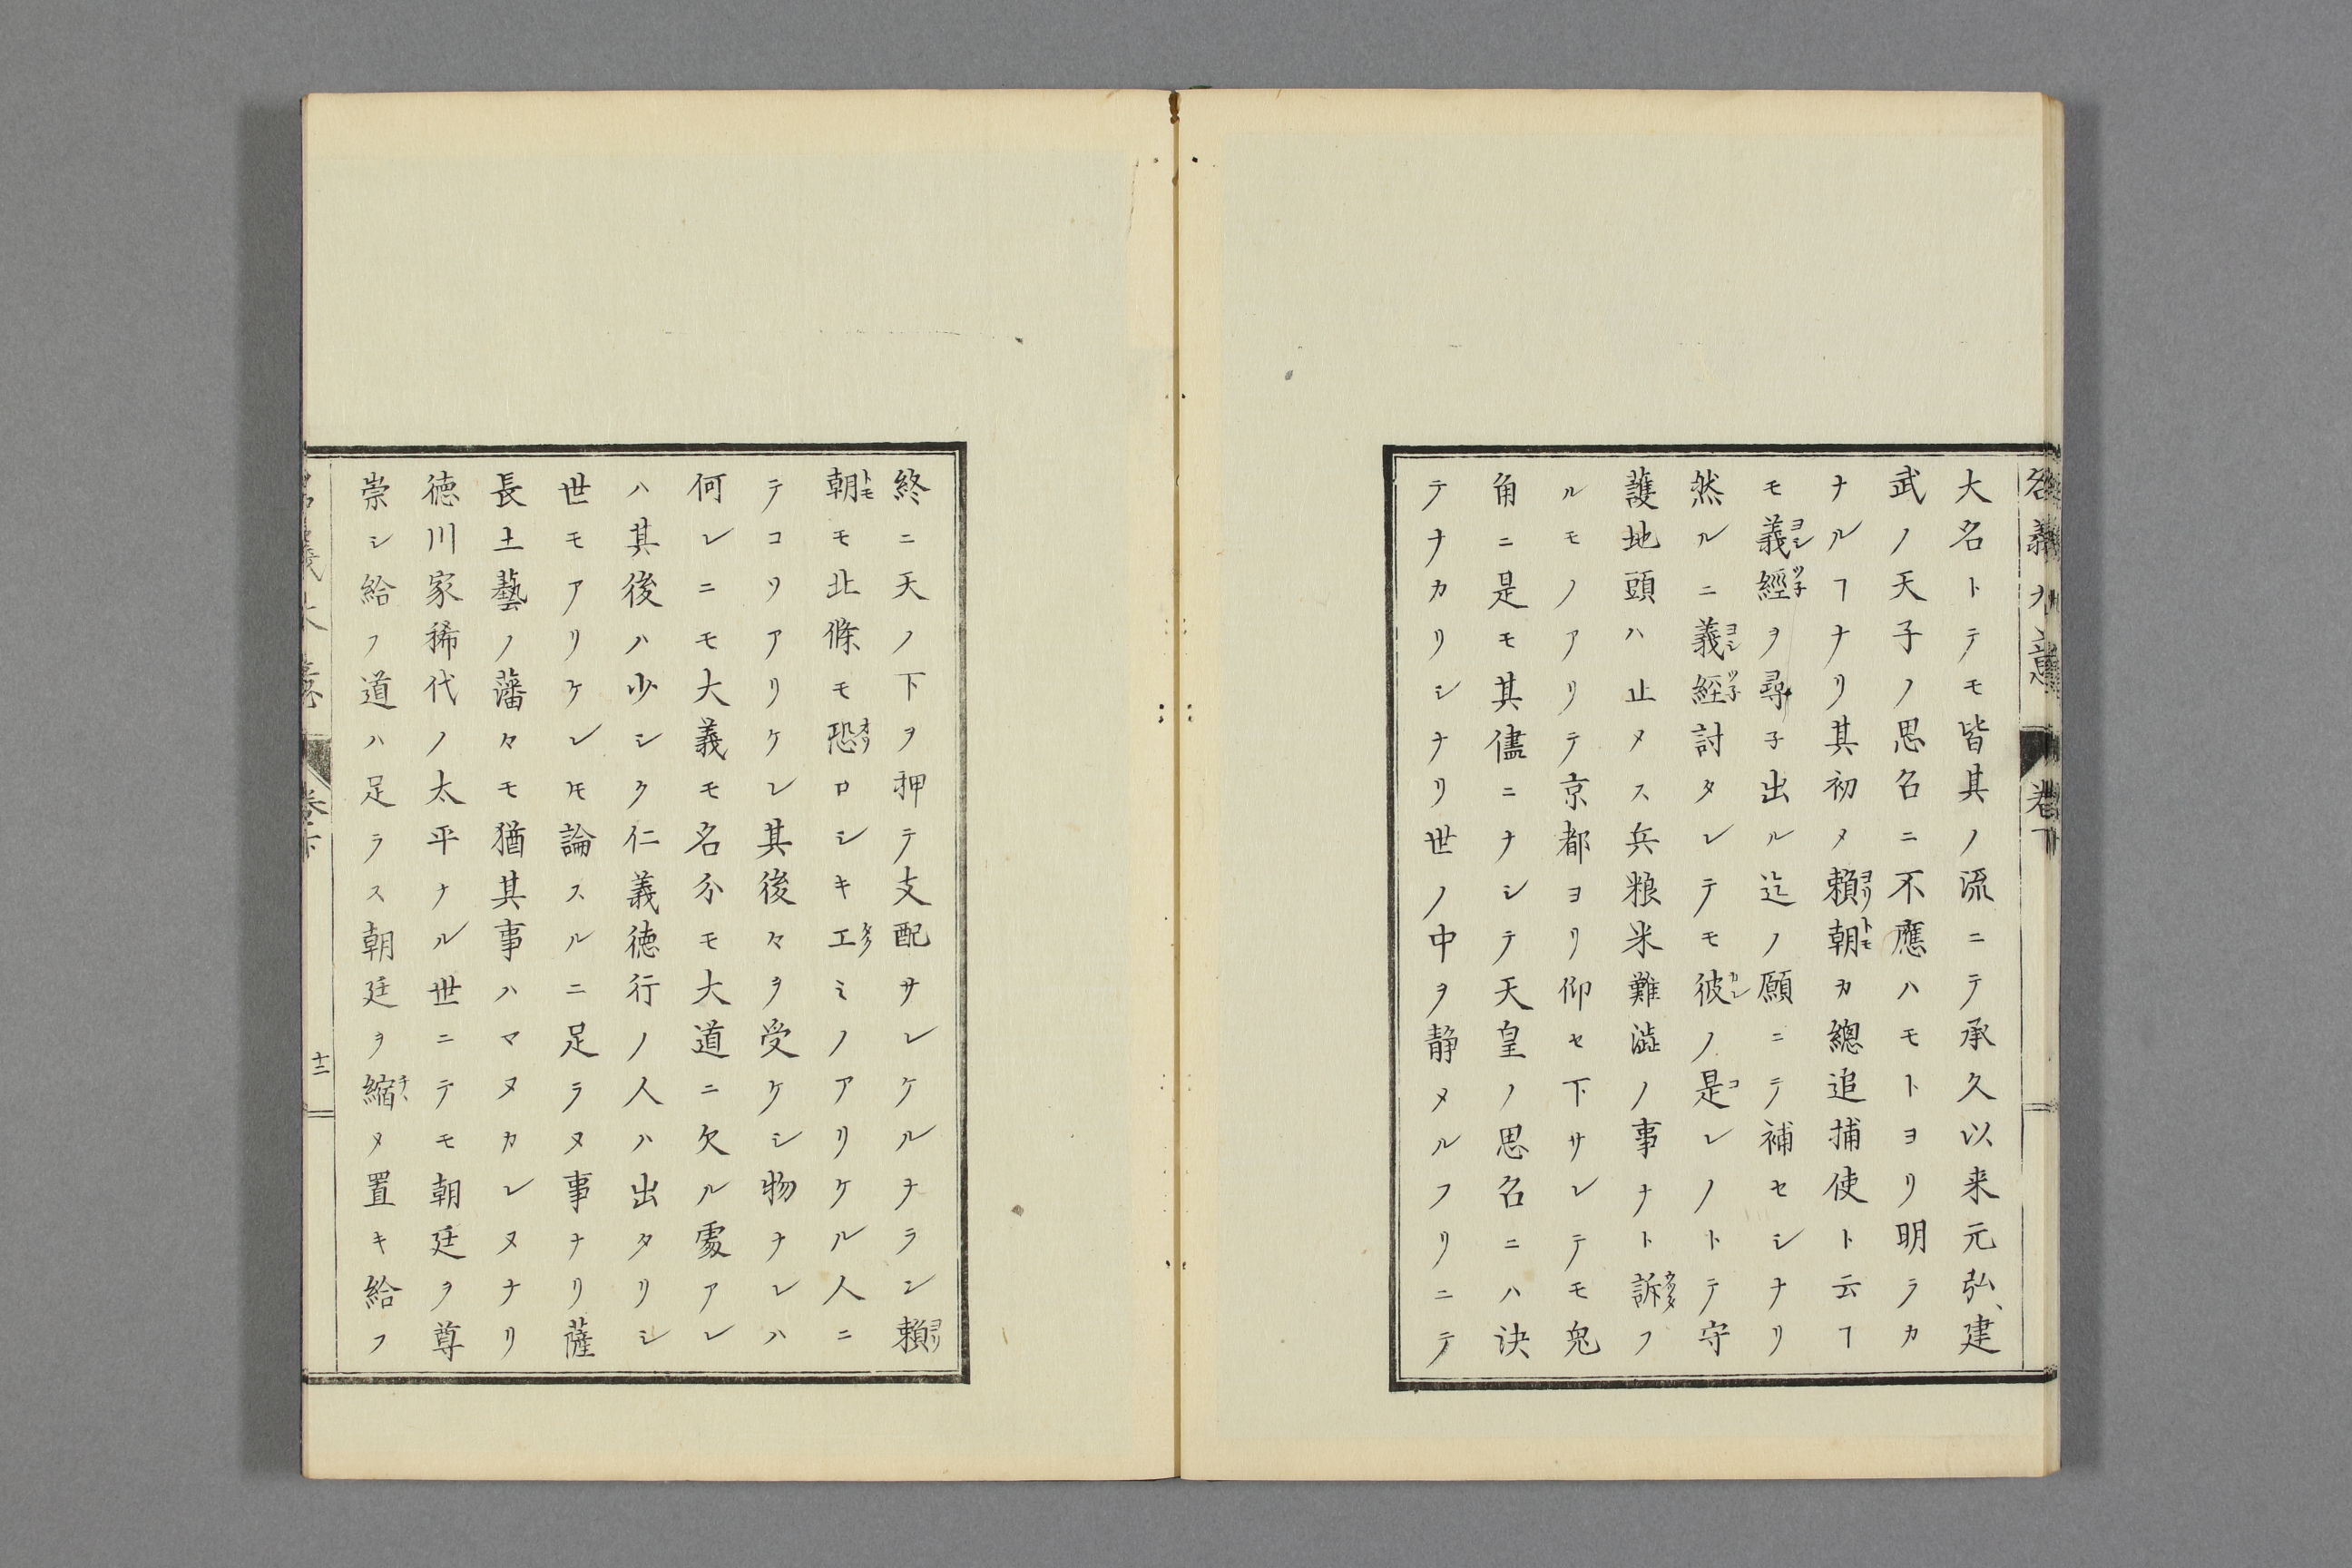 名義大意 卷下
大名トテモ皆其ノ流ニテ承久以来元弘、建
武ノ天子ノ思召ニ不應ハモトヨリ明ラカ
ナルヿナリ其初メ賴朝カ總追捕使ト云ヿ
モ義經ヲ尋子出ル迄ノ願ニテ補セシナリ
然ルニ義經討タレテモ彼ノ是レノトテ守
護地頭ハ止メス兵粮米難澁ノ事ナト訴フ
ルモノアリテ京都ヨリ仰セ下サレテモ兔
角ニ是モ其儘ニナシテ天皇ノ思召ニハ决
テナカリシナリ世ノ中ヲ静メルフリニテ
終ニ天ノ下ヲ押テ支配サレケルナラン賴
朝モ北條モ恐ロシキ工ミノアリケル人ニ
テコリアリケレ其後々ヲ受ケシ物ナレハ
何レニモ大義モ名分モ大道ニ欠ル處アレ
ハ其後ハ少シク仁義徳行ノ人ハ出タリシ
世モアリケレ𪜈論スルニ足ラヌ事ナリ薩
長土藝ノ藩々モ猶其事ハマヌカレヌナリ
徳川家稀代ノ太平ナル世ニテモ朝廷ヲ尊
崇シ給フ道ハ足ラス朝廷ヲ縮メ置キ給フ
十二